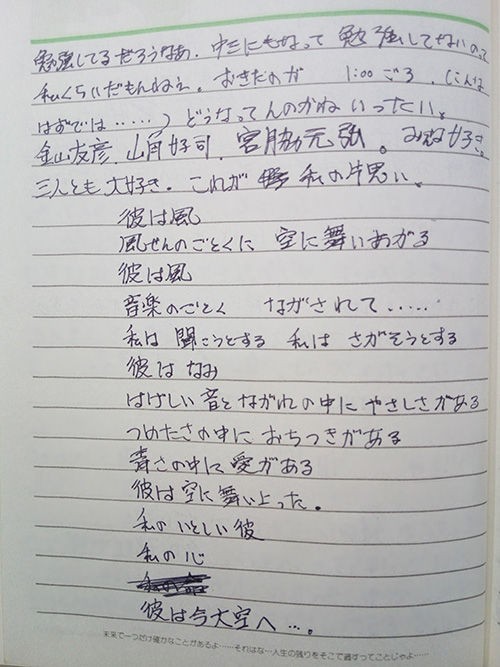 勉強してるだろうなあ。中三にもなって勉強してないのって
私くらいだもんねえ。おきたのが 1:00ごろ。(こんな
はずでは……) どうなってんのかね いったい。
金山友彦、山角好司、宮脇元弘。みんな好き。
三人とも大好き。これが 私の片思い。
彼は風
風せんのごとくに 空に舞いあがる
彼は風
音楽のごとく ながされて……
私は 聞こうとする 私は さがそうとする
彼は なみ
はげしい音とながれの中に やさしさがある
つめたさの中に おちつきがある
青さの中に愛がある
彼は空に舞い上った。
私のいとしい彼
私の心
彼は今大空へ…。
未来で一つだけ確かなことがあるよ……それはな…人生の残りをそこで過すってことじゃよ……